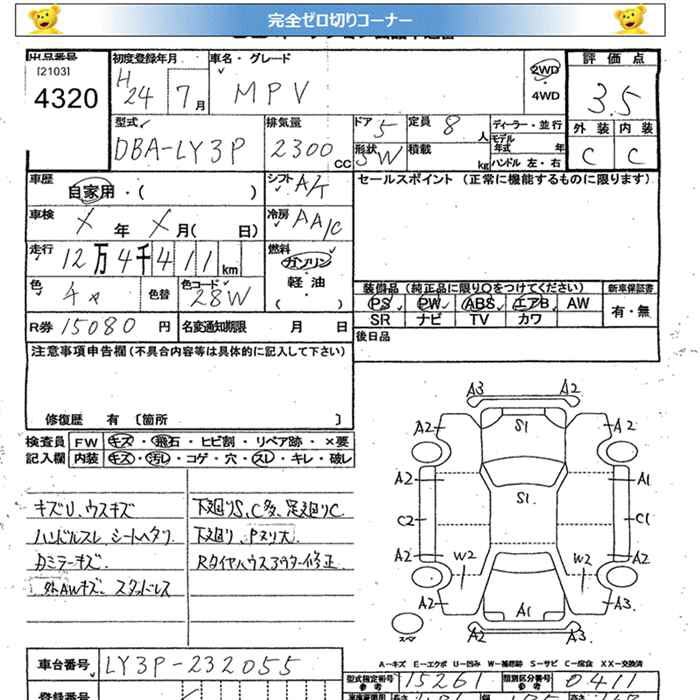 完全ゼロ切りコーナー
出品番号
[2103]
4320
初度登録年月
H
24 7月
車名・グレード
MPV
2WD
4WD
評価点
3.5
外装 内装
C C
型式
DBA-LY3P
排気量
2300
CC
ドア 5
形状 SW
定員 8人
積載 kg
ディーラー・並行
モデル年式 年
ハンドル 左・右
車歴
自家用・( )
シフト A/T
セールスポイント (正常に機能するものに限ります)
車検
X年 X月( 日)
冷房 AA/C
走行
12万4千411km
燃料
ガソリン
軽油
色
色替
色コード
28W
R券 15080円
名変通知期限 月 日
装備品 (純正品に限り○をつけてください)
PS PW ABS エアB AW
SR ナビ TV カワ
新車保証書
有・無
後日品
注意事項申告欄(不具合内容等は具体的に記入して下さい)
修復歴 有 〔箇所 〕
検査員記入欄
FW キズ・飛石・ヒビ割・リペア跡・×要
内装 キズ・汚レ・コゲ・穴・スレ・キレ・破レ
キズU、ウスキズ
ハンドルスレ、シートヘタリ
カミラーキズ
外AWキズ、スタッドレス
下廻りS、C多、足廻りC
下廻り、Pヌリ大
Rタイヤハウスアウター修正
A3 A2
A2 S1 A2
A2 A1
S1
C2 C1
A2 A2
W2 W2
A2 A1 A3
スペア
A2 A3
A-キズ E-エクボ U-凹み W-補修跡 S-サビ C-腐食 XX-交換済
車台番号 LY3P-232055
型式指定番号
参考
15261
類別区分番号
参考
0411